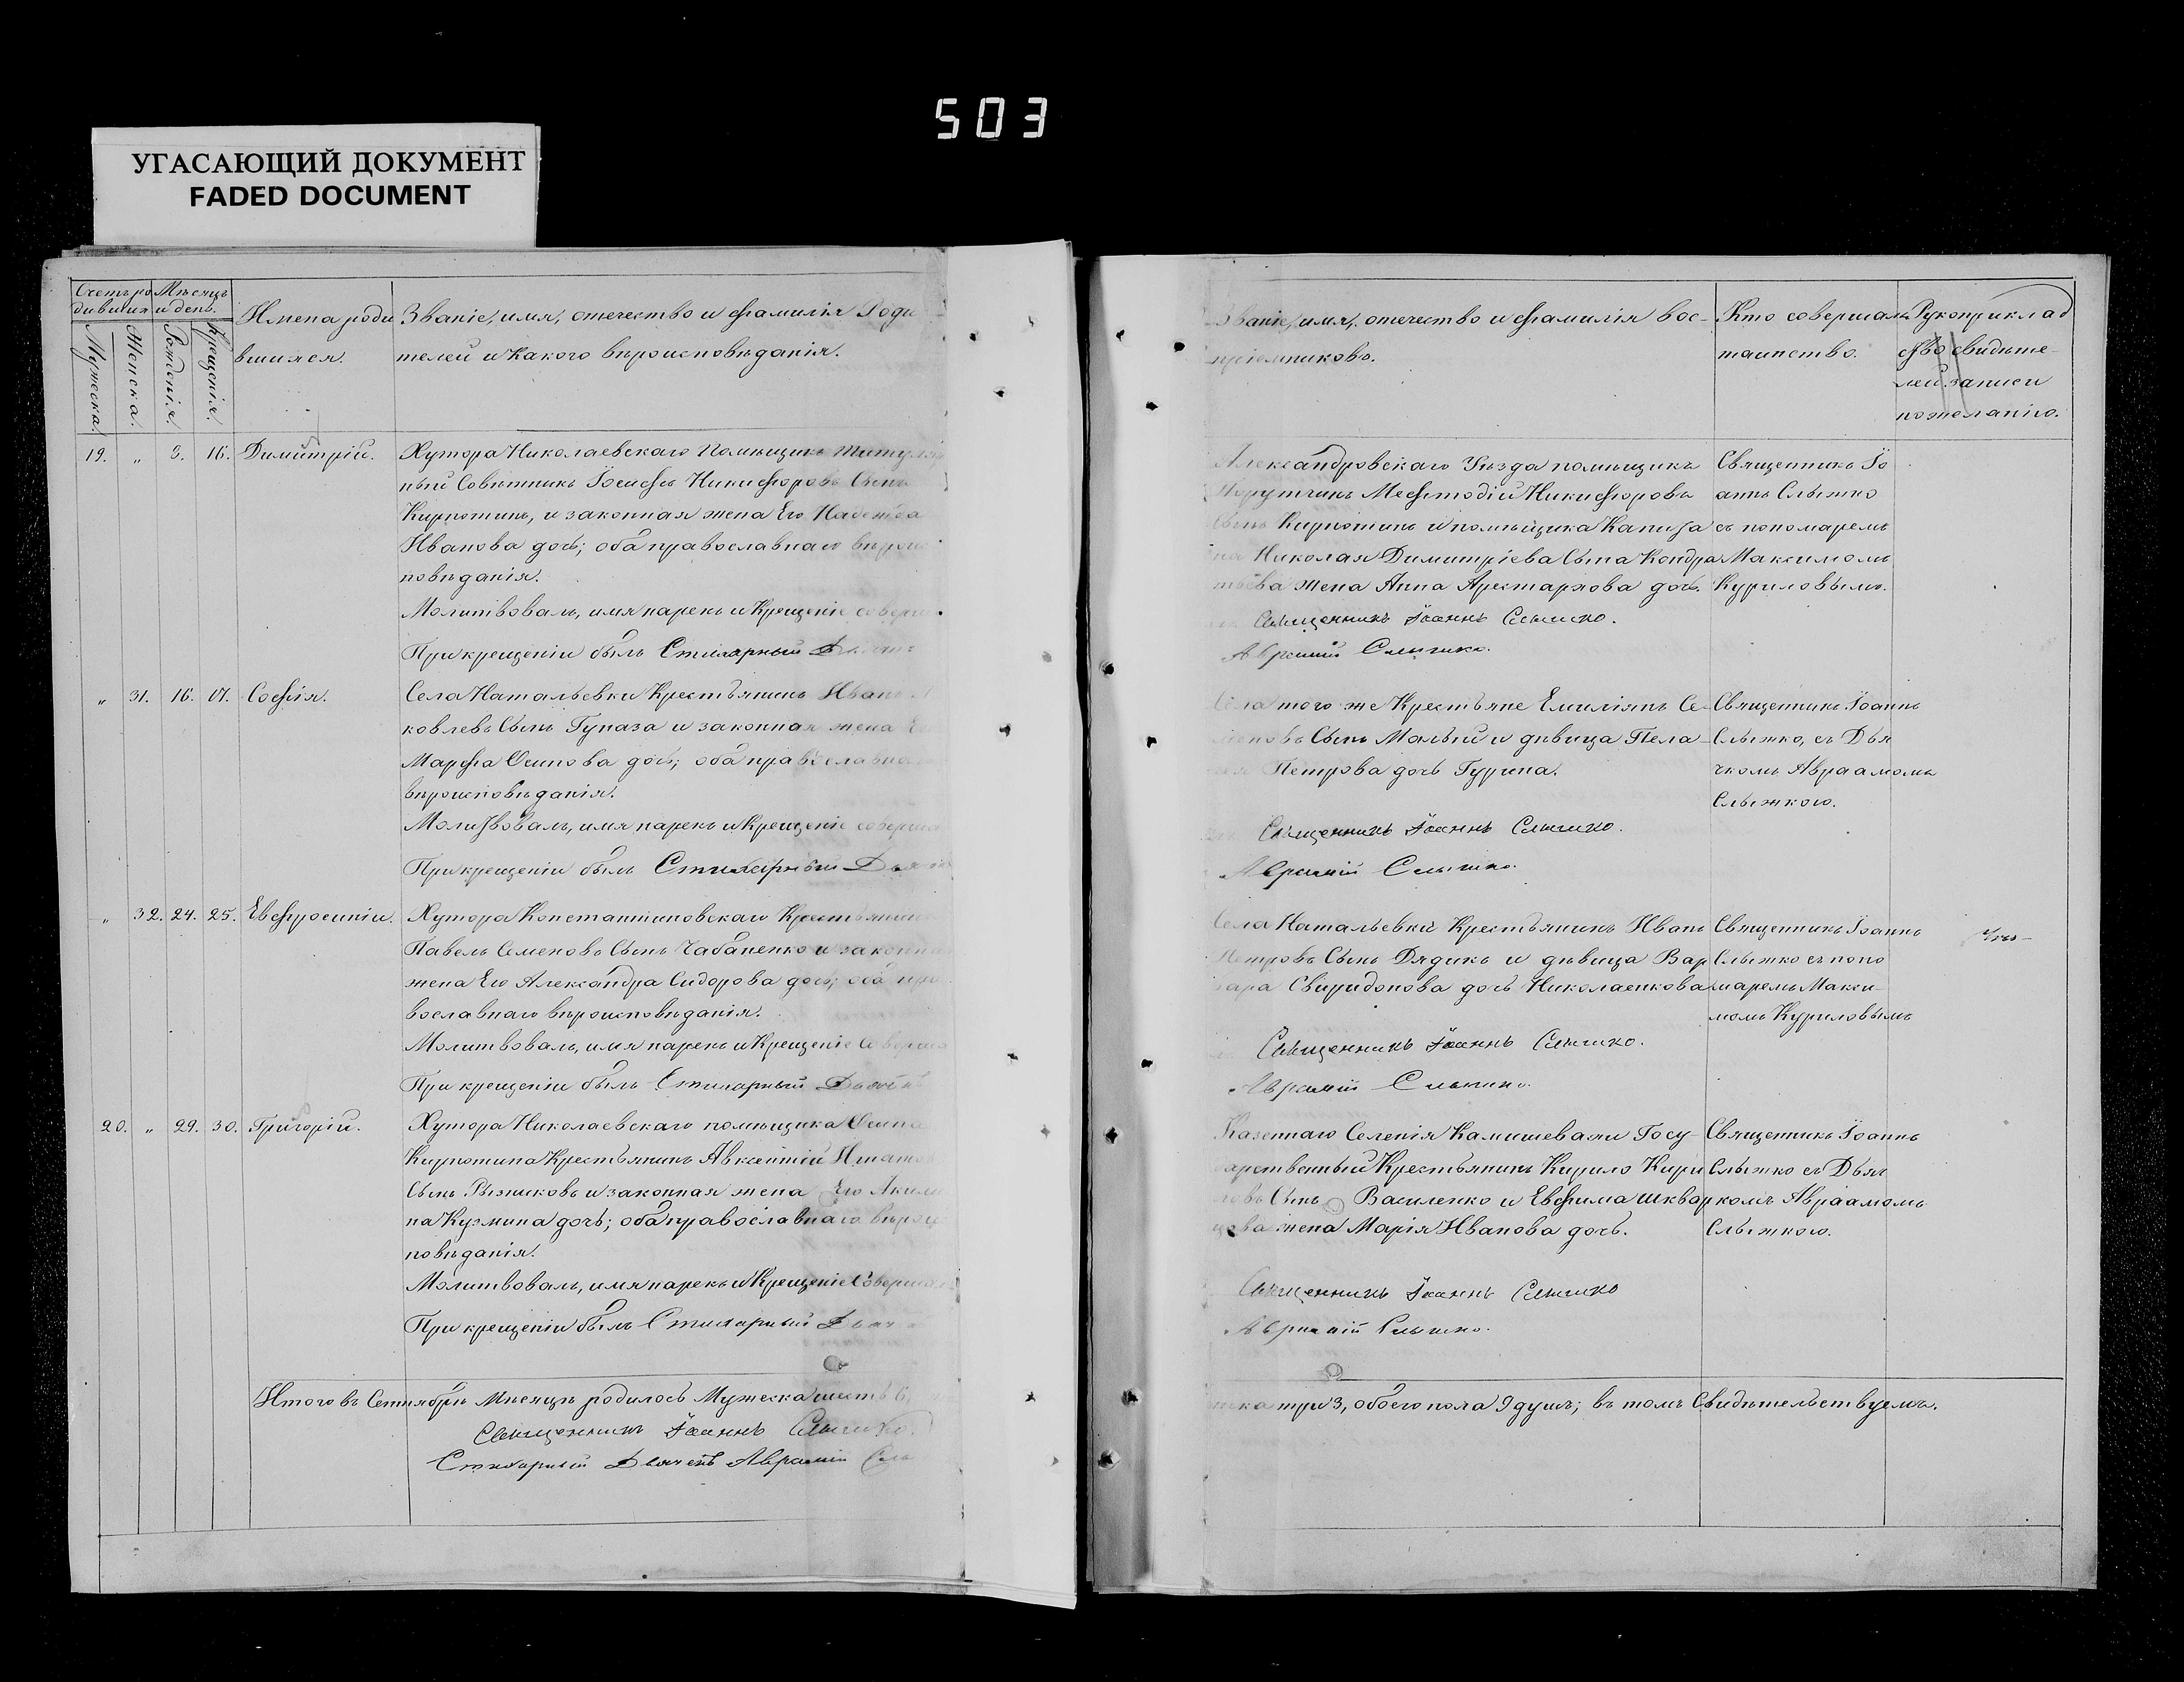 503
УГАСАЮЩИЙ ДОКУМЕНТ
FADED DOCUMENT
Счетъ ро
дивших
Мѣсяцъ
и день.
Мужеска.
Женска.
Рожденія.
Крещенія.
Имена роди
вшихся.
Званіе, имя, отечество и фамилія Роди-
телей и какого вѣроисповѣданія.
19. „ 3. 16. Димитрій.
Хутора Николаевскаго Помѣщикъ Титуляр
ный Совѣтникъ Іосифъ Никифоровъ Сынъ
Кирпотинъ, и законная жена Его Надежда
Иванова дочь; оба православнаго вѣроис
повѣданія.
Молитвовалъ, имя нарекъ и Крещеніе соверши
При крещеніи былъ Стихарный
„ 31. 16. 17. Софія.
Села Натальевки Крестьянинъ Иванъ
ковлевъ Сынъ Гупаза и законная жена
Марфа Осипова дочь; оба православна
вѣроисповѣданія.
Молитвовалъ, имя нарекъ и Крещеніе соверша
При крещеніи былъ Стихарный Дья
„ 32. 24. 25. Евфросинія.
Хутора Константиновскаго Крестьянин
Павелъ Семеновъ Сынъ Чабаненко и законна
жена Его Александра Сидорова дочь; оба пра
вославнаго вѣроисповѣданія.
Молитвовалъ, имя нарекъ и Крещеніе Соверша
При крещеніи былъ Стихарный Дьячекъ
20. „ 29. 30. Григорій.
Хутора Николаевскаго помѣщика Осипа
Кирпотина Крестьянинъ Авксентій Игнато
Сынъ Рѣзниковъ и законная жена Его Акили
на Кузмина дочь; оба православнаго вѣроис
повѣданія.
Молитвовалъ, имя нарекъ и Крещеніе Соверша
При крещеніи былъ Стихарный Дьяч
Итого въ Сентябрѣ Мѣсяцѣ родилось Мужеска шесть 6,
Священникъ Іоаннъ Слышко.
Стихарный Дьячекъ Аврамій Слы
Званіе, имя, отечество и фамилія вос-
пріемниковъ.
Кто совершалъ
таинство.
Рукоприклад
ство свидѣте-
лей записи
по желанію.
Александровскаго Уѣзда помѣщикъ
Порутчикъ Мефтодій Никифоровъ
Сынъ Кирпотинъ и помѣщика Капита
на Николая Димитріева Сына Кондра
тьева жена Анна Арестархова дочь.
Священникъ Іо
аннъ Слыжко
съ пономаремъ
Максимомъ
Куриловымъ.
Священникъ Іоаннъ Слышко.
Аврамій Слышко.
Села того же Крестьяне Емиліянъ Се-
меновъ Сынъ Малый и дѣвица Пела-
Петрова дочь Гурина.
Священникъ Іоаннъ
Слыжко, съ Дья
чкомъ Авраамомъ
Слыжкою.
Священникъ Іоаннъ Слышко.
Аврамій Слышко.
Села Натальевки Крестьянинъ Иванъ
Петровъ Сынъ Дядикъ и дѣвица Вар
вара Свиридонова дочь Николаенкова
Священникъ Іоаннъ
Слыжко съ поно
маремъ Макси-
момъ Куриловымъ
Священникъ Іоаннъ Слышко.
Аврамій Слышко.
Казеннаго Селенія Камишевахи Госу-
дарственный Крестьянинъ Кирило Кири
ловъ Сынъ Василенко и Евфима Шквар
цова жена Марія Иванова дочь.
Священникъ Іоаннъ
Слыжко съ Дьяч
комъ Авраамомъ
Слыжкою.
Священникъ Іоаннъ Слышко
Аврамій Слышко.
нска три 3, обоего пола 9 душъ; въ томъ Свидѣтельствуемъ.